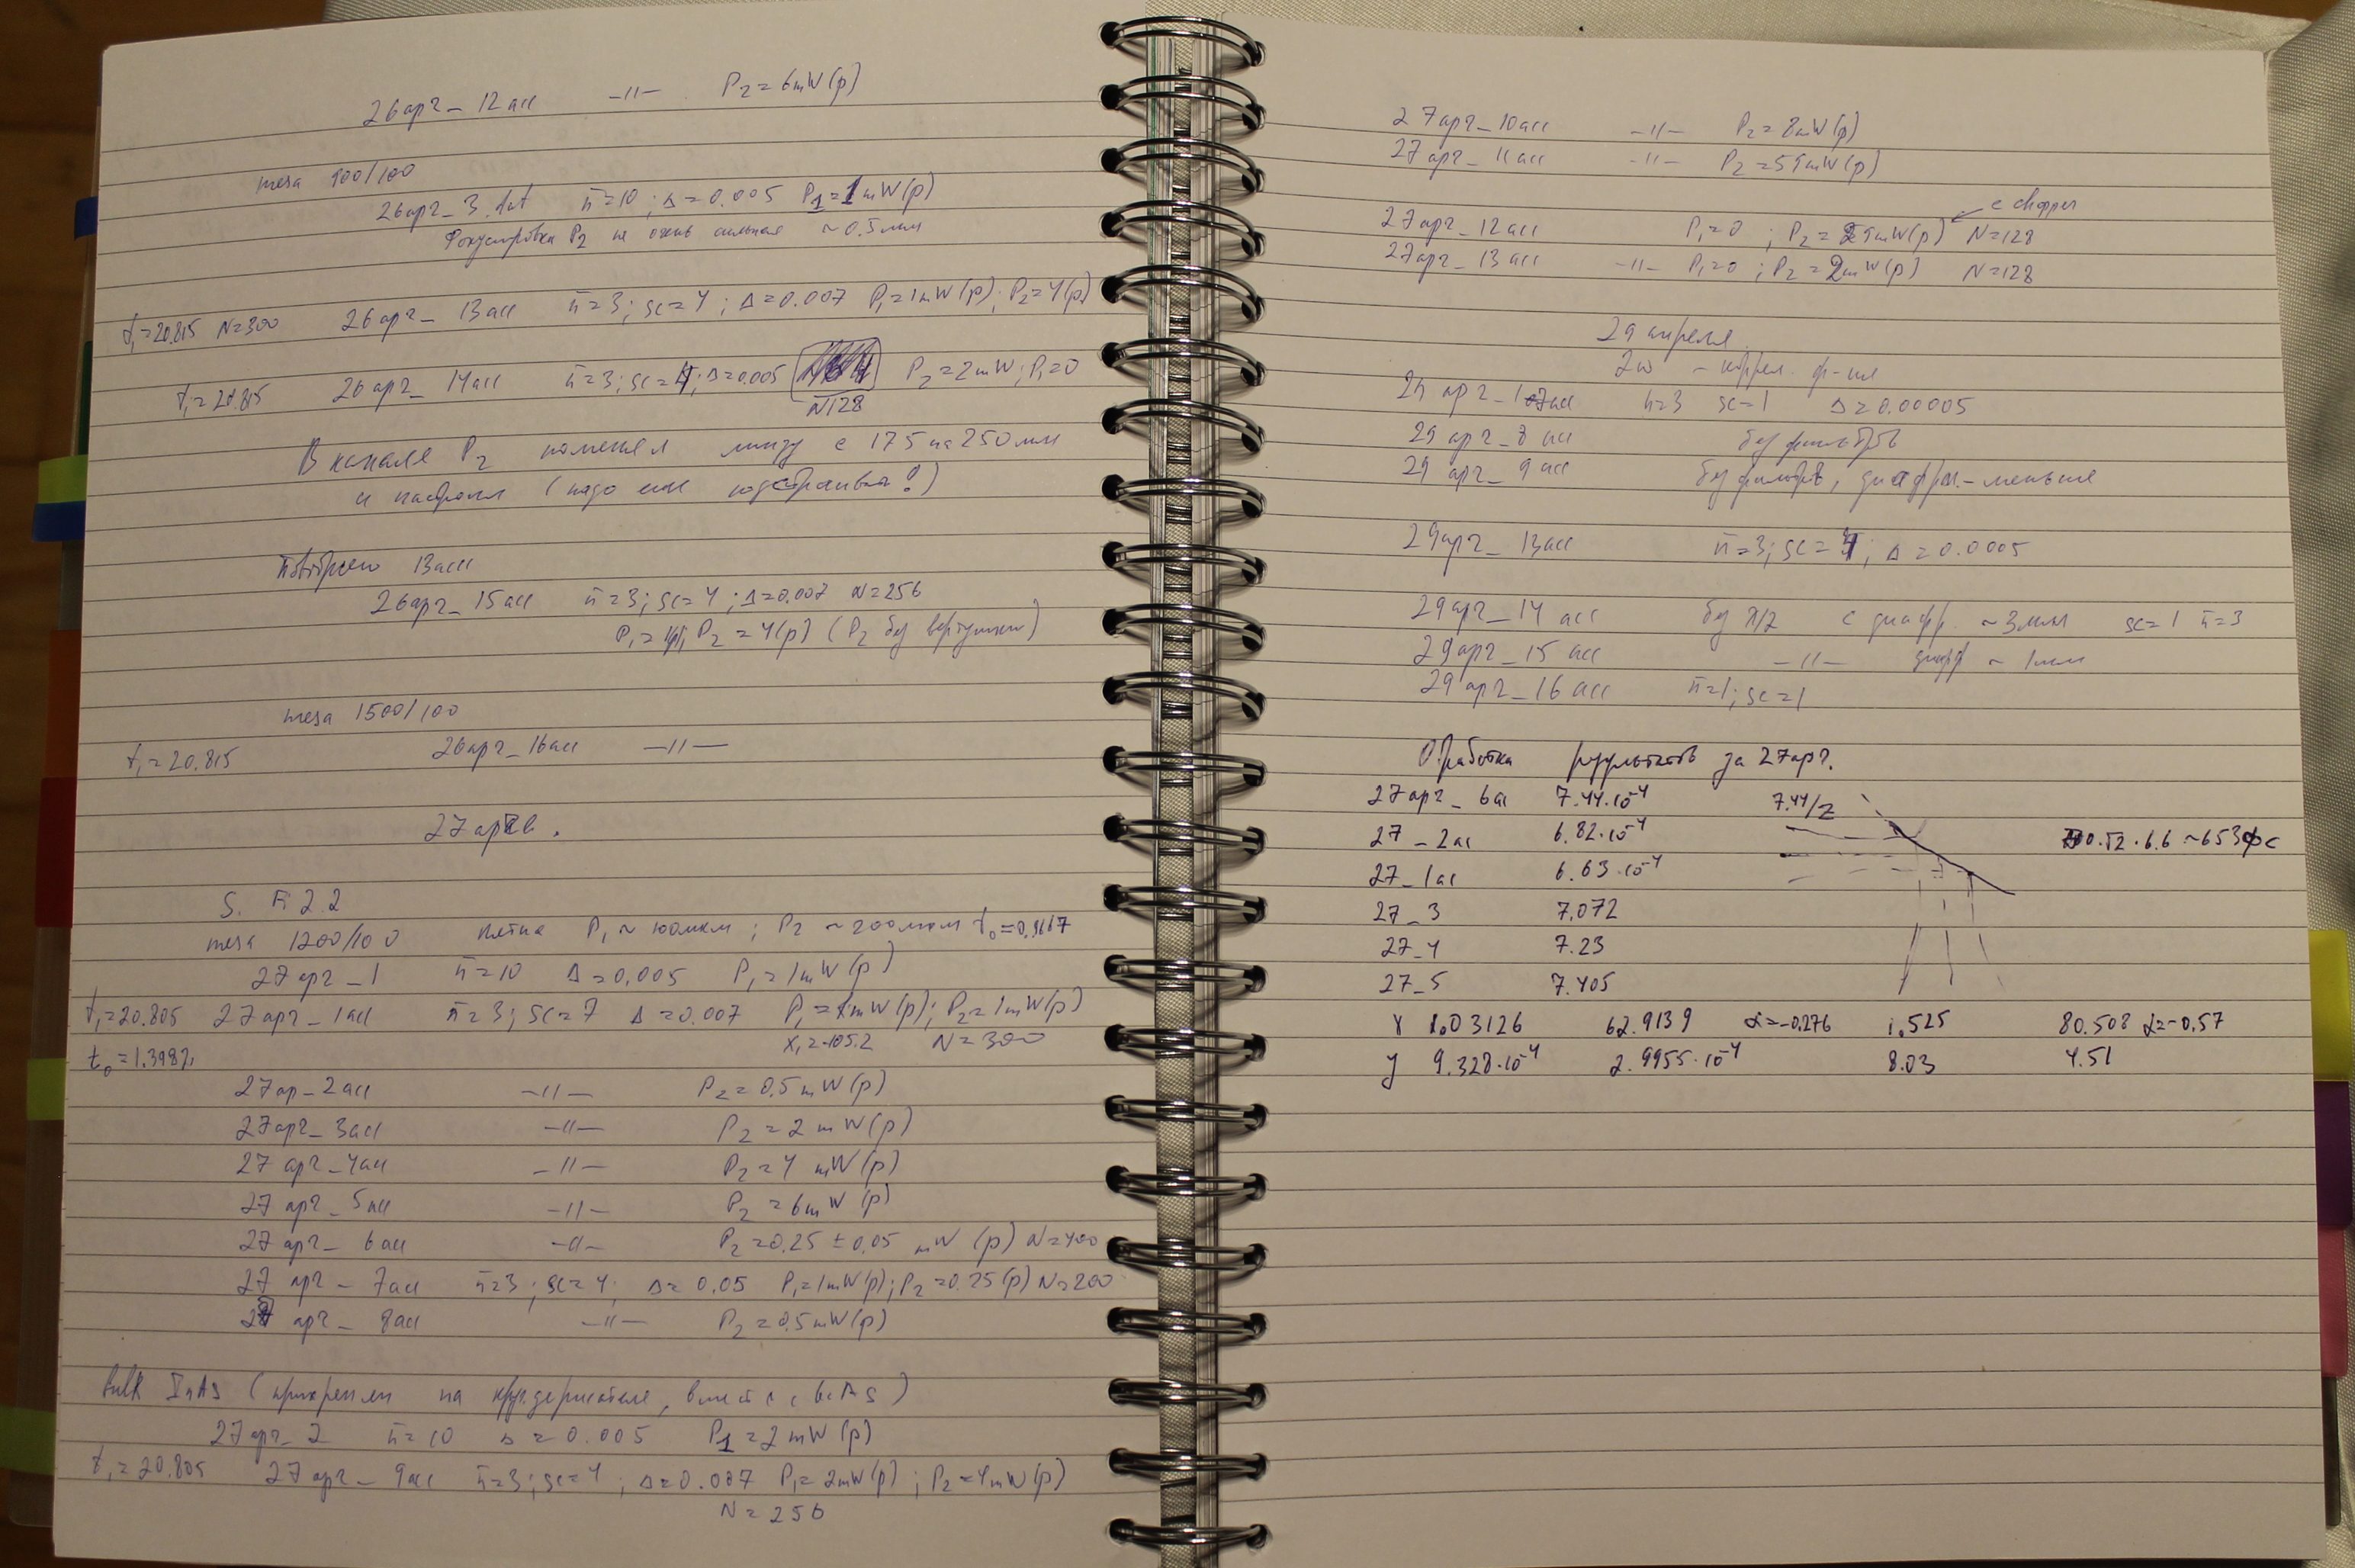 26апр_12acc —11— P2=6mW(p)
mesa 900/100
26апр_3.dat n̄=10; Δ=0.005 P1=1mW(p)
Фокусировка P2 не очень сильная ~0.5мм
t1=20.815 N=300 26апр_13acc n̄=3; sc=4; Δ=0.007 P1=1mW(p); P2=4(p)
t1=20.815 26апр_14acc n̄=3; sc=4; Δ=0.005 N128 P2=2mW; P1=0
В канале P2 поменял линзу с 175 на 250мм
и настроил (надо еще подстраивать!)
Повторяю 13acc
26апр_15acc n̄=3; sc=4; Δ=0.007 N=256
P2=4(p) (P2 без вертушки)
mesa 1500/100
t1=20.815 26апр_16acc —11—
27апр.
mesa 1200/100 пятна P1~100мкм; P2~200мкм
27апр_1 n̄=10 Δ=0.005 P1=1mW(p)
t1=20.805 27апр_1acc n̄=3; sc=7 Δ=0.007 P1=1mW(p); P2=1mW(p)
x1=-105.2 N=300
t0=1.398
27ap_2acc —11— P2=0.5mW(p)
27апр_3acc —11— P2=2mW(p)
27апр_4acc —11— P2=4mW(p)
27апр_5acc —11— P2=6mW(p)
27апр_6acc —11— P2=0.25±0.05 mW(p) N=400
27апр_7acc n̄=3; sc=4; Δ=0.05 P1=1mW(p); P2=0.25(p) N=200
27апр_8acc —11— P2=0.5mW(p)
bulk InAs (прикреплен на кругл.держателе, вместе с GaAs)
27апр_2 n̄=10 Δ=0.005 P1=2mW(p)
t1=20.805 27апр_9acc n̄=3; sc=4; Δ=0.007 P1=2mW(p); P2=4mW(p)
N=256
27апр_10acc —11— P2=8mW(p)
27апр_11acc —11— P2=59mW(p)
с chopper
27апр_12acc P1=0; P2=59mW(p) N=128
27апр_13acc —11— P1=0; P2=2mW(p) N=128
29 апреля
2ω - коррел. ф-ия
29апр_17acc n=3 sc=1 Δ=0.00005
29апр_8acc без фильтров
29апр_9acc без фильтров, диафрагм.-меньше
29апр_13acc n̄=3; sc=4; Δ=0.0005
29апр_14acc без λ/2 с диафр. ~3мм sc=1 n̄=3
29апр_15acc —11— диафр ~1мм
29апр_16acc n̄=1; sc=1
Обработка результатов за 27апр.
27апр_6ac 7.44·10⁻⁴ 7.44/2
27_2ac 6.82·10⁻⁴ ·√2·6.6~653фс
27_1ac 6.63·10⁻⁴
27_3 7.072
27_4 7.23
27_5 7.405
x 1.03126 62.9139 α=-0.276 1.525 80.508 α=-0.57
y 9.328·10⁻⁴ 2.9955·10⁻⁴ 8.03 4.51